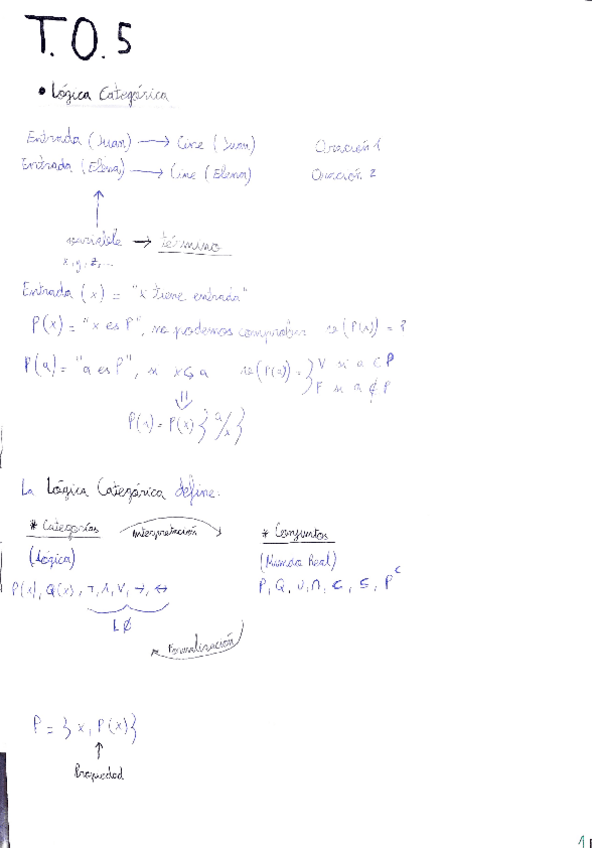 T.O.5
• Lógica Categórica
Entrada (Juan) → Cine (Juan) Oración 1
Entrada (Elena) → Cine (Elena) Oración 2
↑
variable → término
x, y, z, ...
Entrada (x) = "x tiene entrada"
P(x) = "x es P", no podemos comprobar v(P(x)) = ?
P(a) = "a es P", si x a v(P(a)) = } V si a ⊂ P
F si a ⊄ P
⇓
P(a) = P(x) { a/x }
La Lógica Categórica define:
* Categorías Interpretación * Conjuntos
(Lógica) (Mundo Real)
P(x), Q(x), ¬, ∧, ∨, →, ↔ P, Q, ∪, ∩, ⊂, ⊆, Pᶜ
LØ
Formalización
P = { x, P(x) }
↑
Propiedad
1